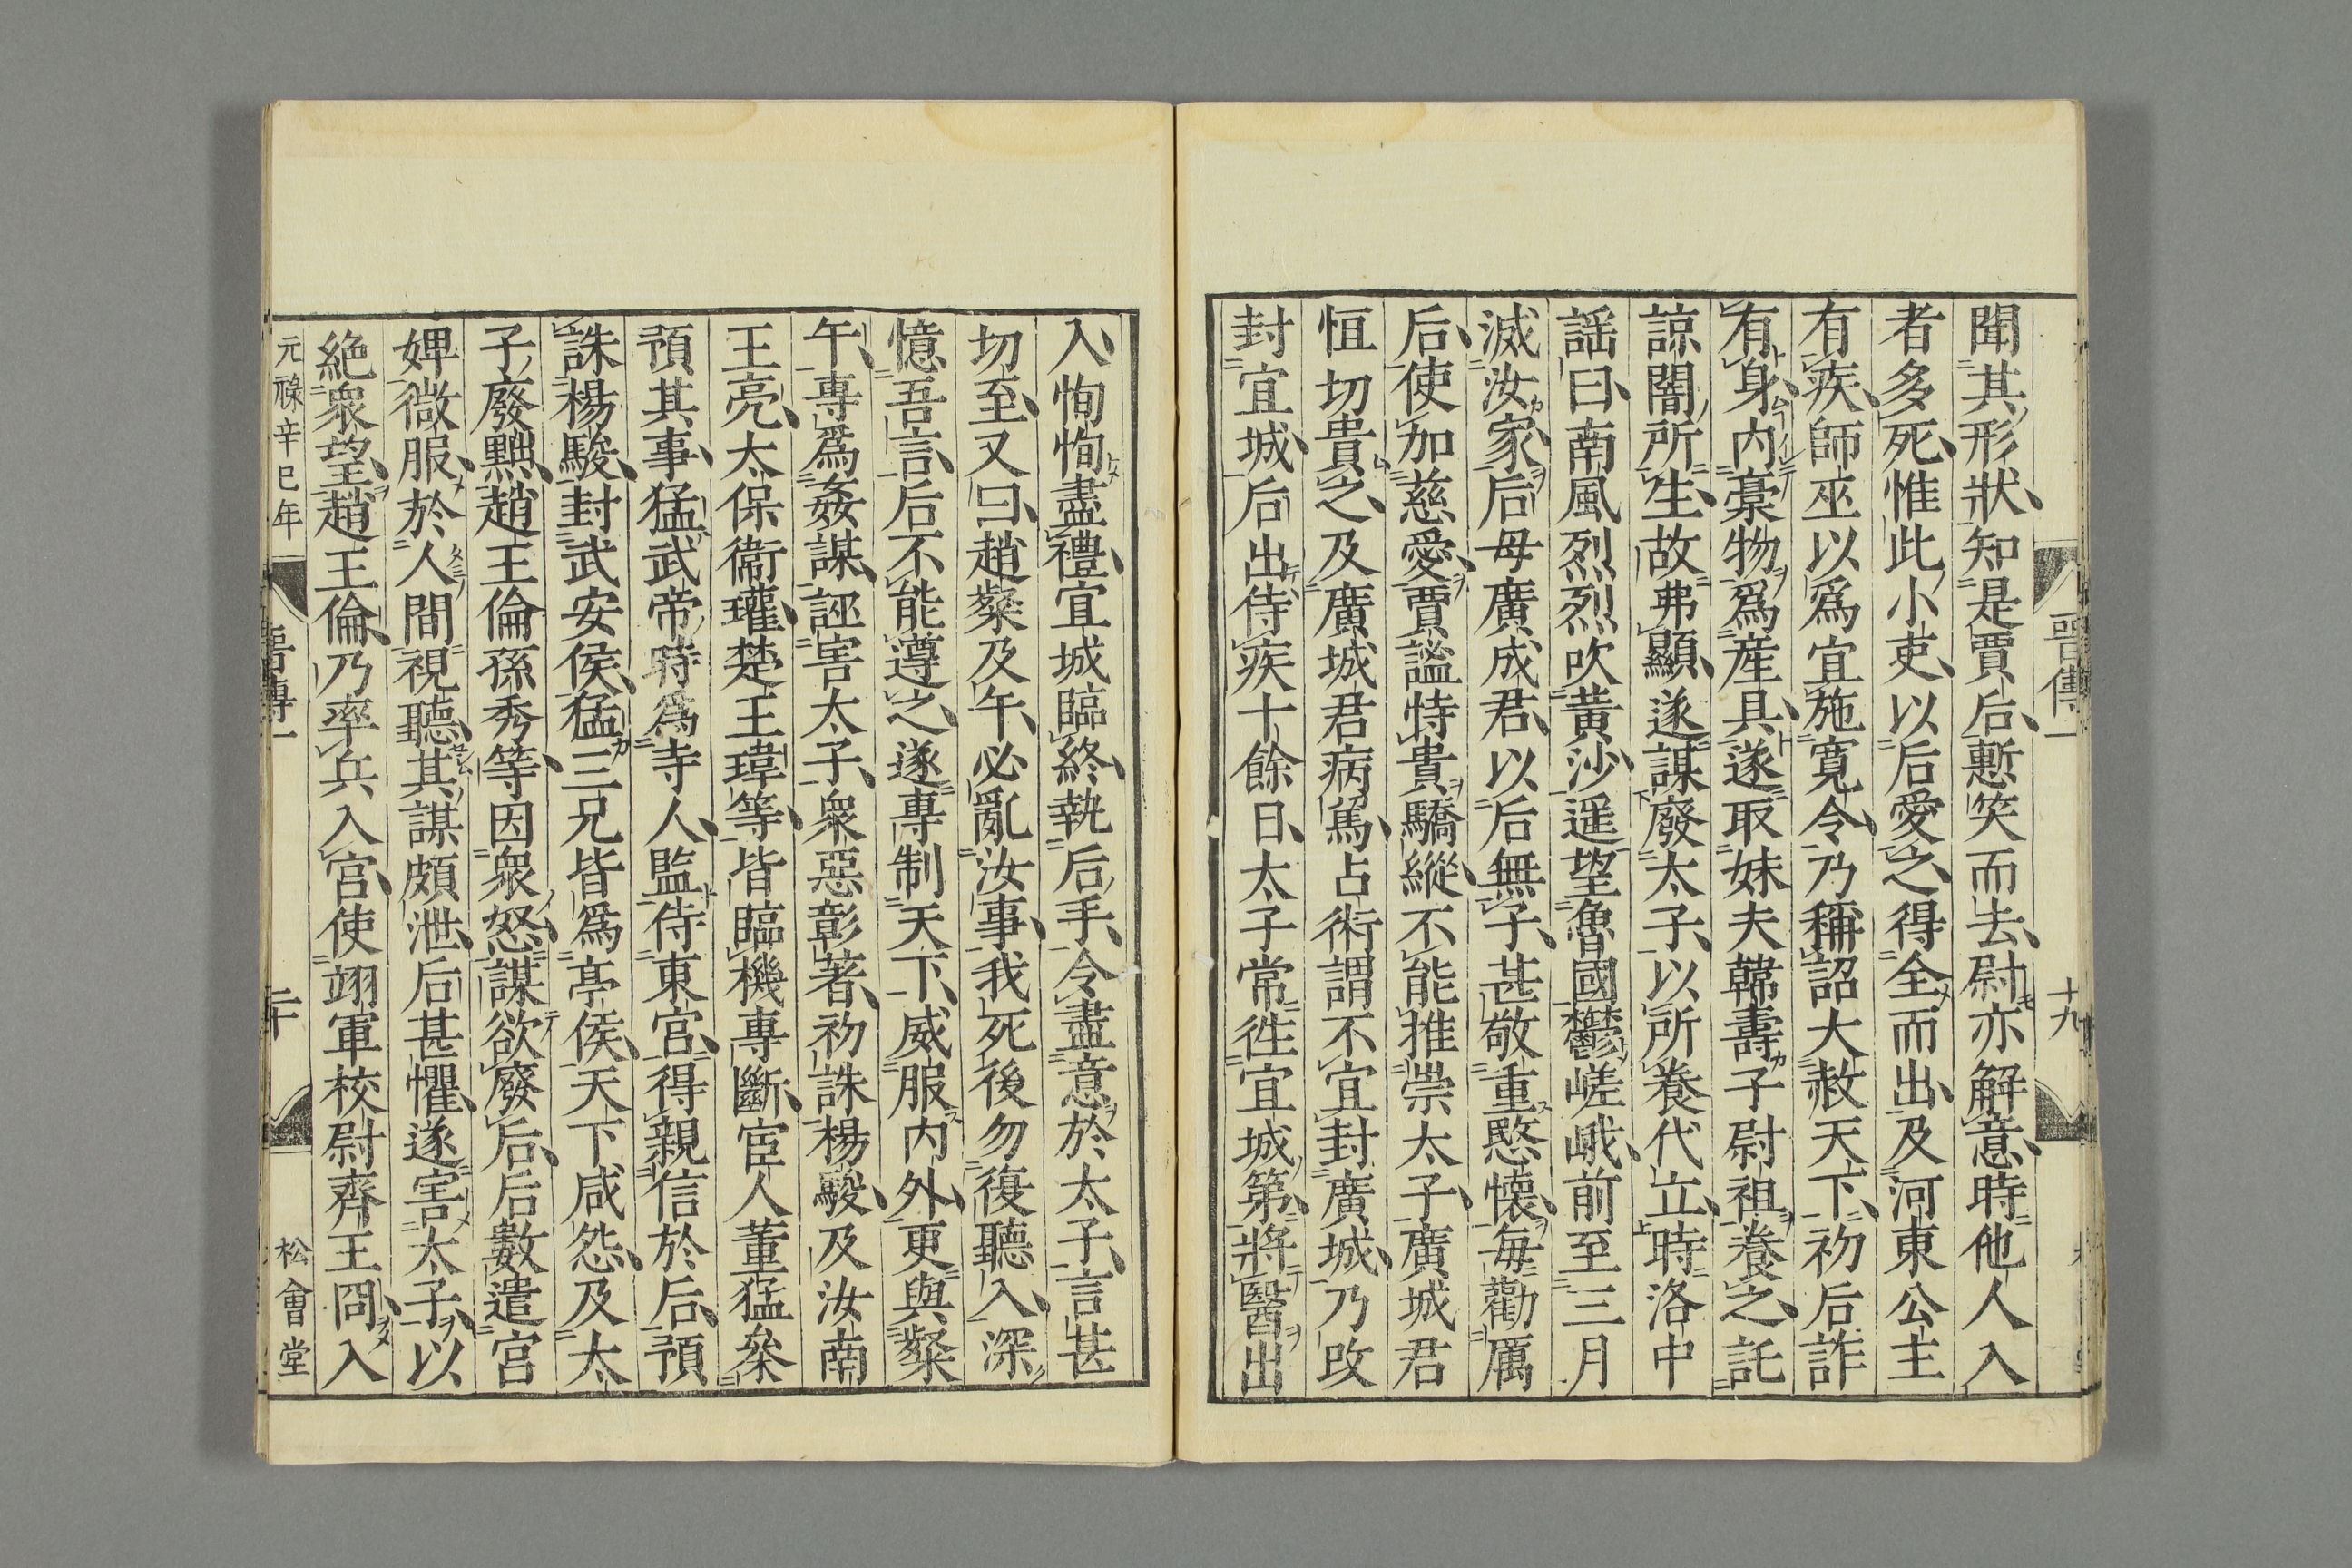 晉傳一
十九
聞其形狀知是賈后慙笑而去尉亦解意時他人入
者多死惟此小吏以后愛之得全而出及河東公主
有疾師巫以爲宜施寬令乃稱詔大赦天下初后詐
有身內藁物爲産具遂取妹夫韓壽子尉祖養之託
諒闇所生故弗顯遂謀廢太子以所養代立時洛中
謡曰南風烈烈吹黄沙遥望魯國鬱嵯峨前至三月
滅汝家后母廣成君以后無子甚敬重愍懷每勸厲
后使加慈愛賈謐恃貴驕縱不能推崇太子廣城君
恒切責之及廣城君病篤占術謂不宜封廣城乃改
封宜城后出侍疾十餘日太子常徃宜城第將醫出
入恂恂盡禮宜城臨終執后手令盡意於太子言甚
切至又曰趙粲及午必亂汝事我死後勿復聽入深
憶吾言后不能遵之遂專制天下威服內外更與粲
午專爲姦謀誣害太子衆惡彰著初誅楊駿及汝南
王亮太保衞瓘楚王瑋等皆臨機專斷宦人董猛叅
預其事猛武帝時爲寺人監侍東宮得親信於后預
誅楊駿封武安侯猛三兄皆爲亭侯天下咸怨及太
子廢黜趙王倫孫秀等因衆怒謀欲廢后后數遣宮
婢微服於人間視聽其謀頗泄后甚懼遂害太子以
絶衆望趙王倫乃率兵入宮使翊軍校尉齊王冏入
元祿辛巳年
晉傳一
二十
松會堂